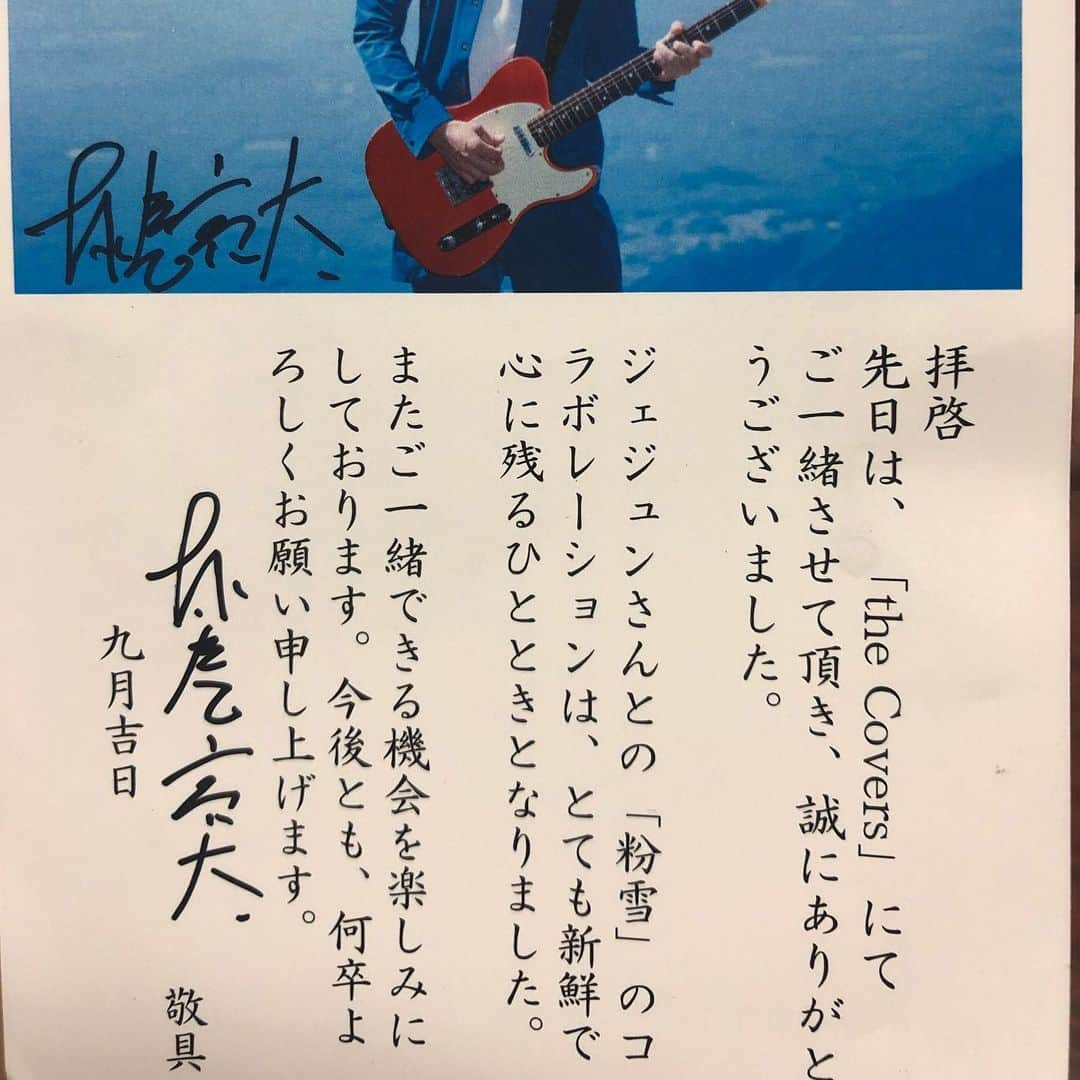 拝啓
先日は、「the Covers」にて
ご一緒させて頂き、誠にありがと
うございました。
ジェジュンさんとの「粉雪」のコ
ラボレーションは、とても新鮮で
心に残るひとときとなりました。
またご一緒できる機会を楽しみに
しております。今後とも、何卒よ
ろしくお願い申し上げます。
敬具
九月吉日